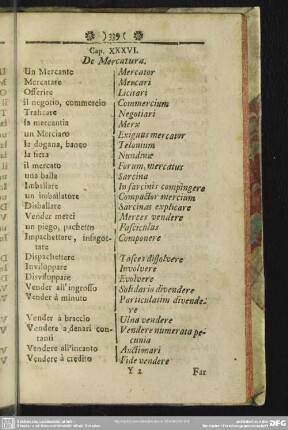 ) 339 (
Cap. XXXVI.
De Mercatura.
Un Mercante Mercator
Mercatare Mercari
Offerire Licitari
il negotio, commercio Commercium
Traficare Negotiari
la mercantia Merx
un Merciaro Exiguus mercator
la dogana, banco Telonium
la fiera Nundinæ
il mercato Forum, mercatus
una balla Sarcina
Imballare In sarcinis compingere
un imballatore Compactor mercium
Disballare Sarcinas explicare
Vender merci Merces vendere
un piego, pachetto Fasciculus
Impachettare, infagot- Componere
tare
Dispachettare Fasces dissolvere
Inviloppare Involvere
Disviloppare Evolvere
Vender all'ingrosso Solidaria divendere
Vender à minuto Particulatim divende-
re
Vender à braccio Ulna vendere
Vendere a denari con- Vendere numerata pe-
tanti cunia
Vendere all'incanto Auctionari
Vendere à credito Fide vendere
Y 2 Far